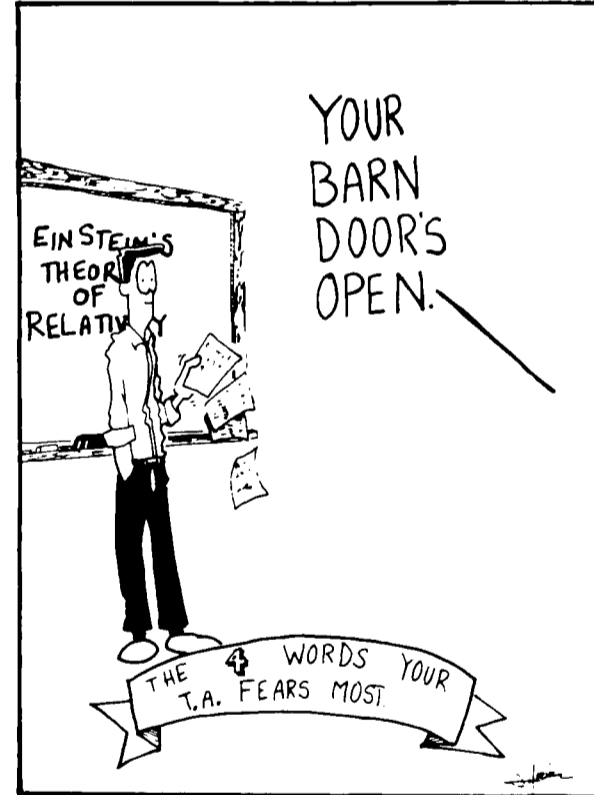 YOUR
BARN
DOOR'S
OPEN.
EINSTEIN'S
THEORY
OF
RELATIVITY
THE 4 WORDS YOUR
T.A. FEARS MOST.